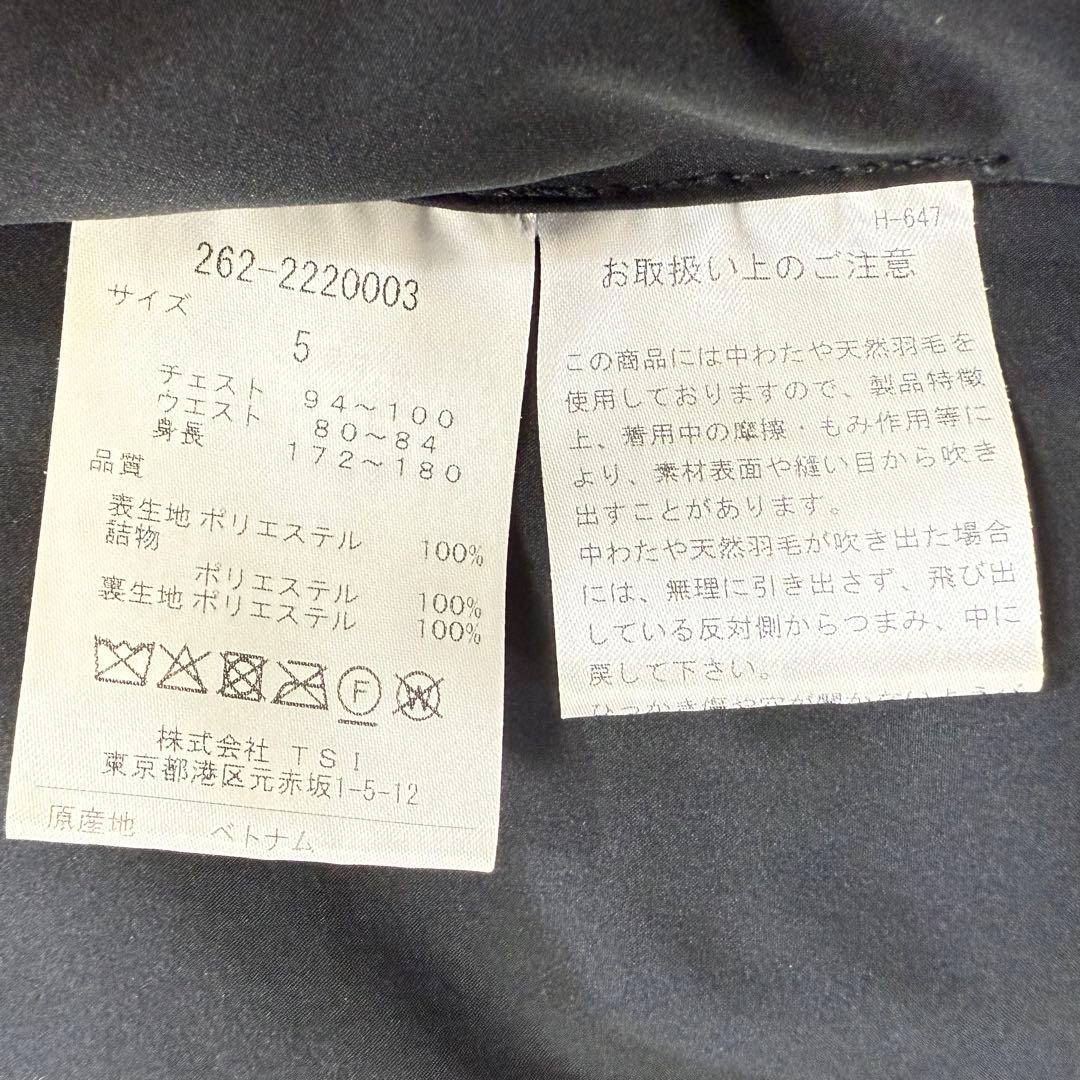 262-2220003
サイズ
5
チェスト 94～100
ウエスト 80～84
身長 172～180
品質
表生地 ポリエステル 100%
詰物
ポリエステル 100%
裏生地 ポリエステル 100%
F
W
株式会社 TSI
東京都港区元赤坂1-5-12
原産地 ベトナム
H-647
お取扱い上のご注意
この商品には中わたや天然羽毛を
使用しておりますので、製品特徴
上、着用中の摩擦・もみ作用等に
より、素材表面や縫い目から吹き
出すことがあります。
中わたや天然羽毛が吹き出た場合
には、無理に引き出さず、飛び出
している反対側からつまみ、中に
戻して下さい。